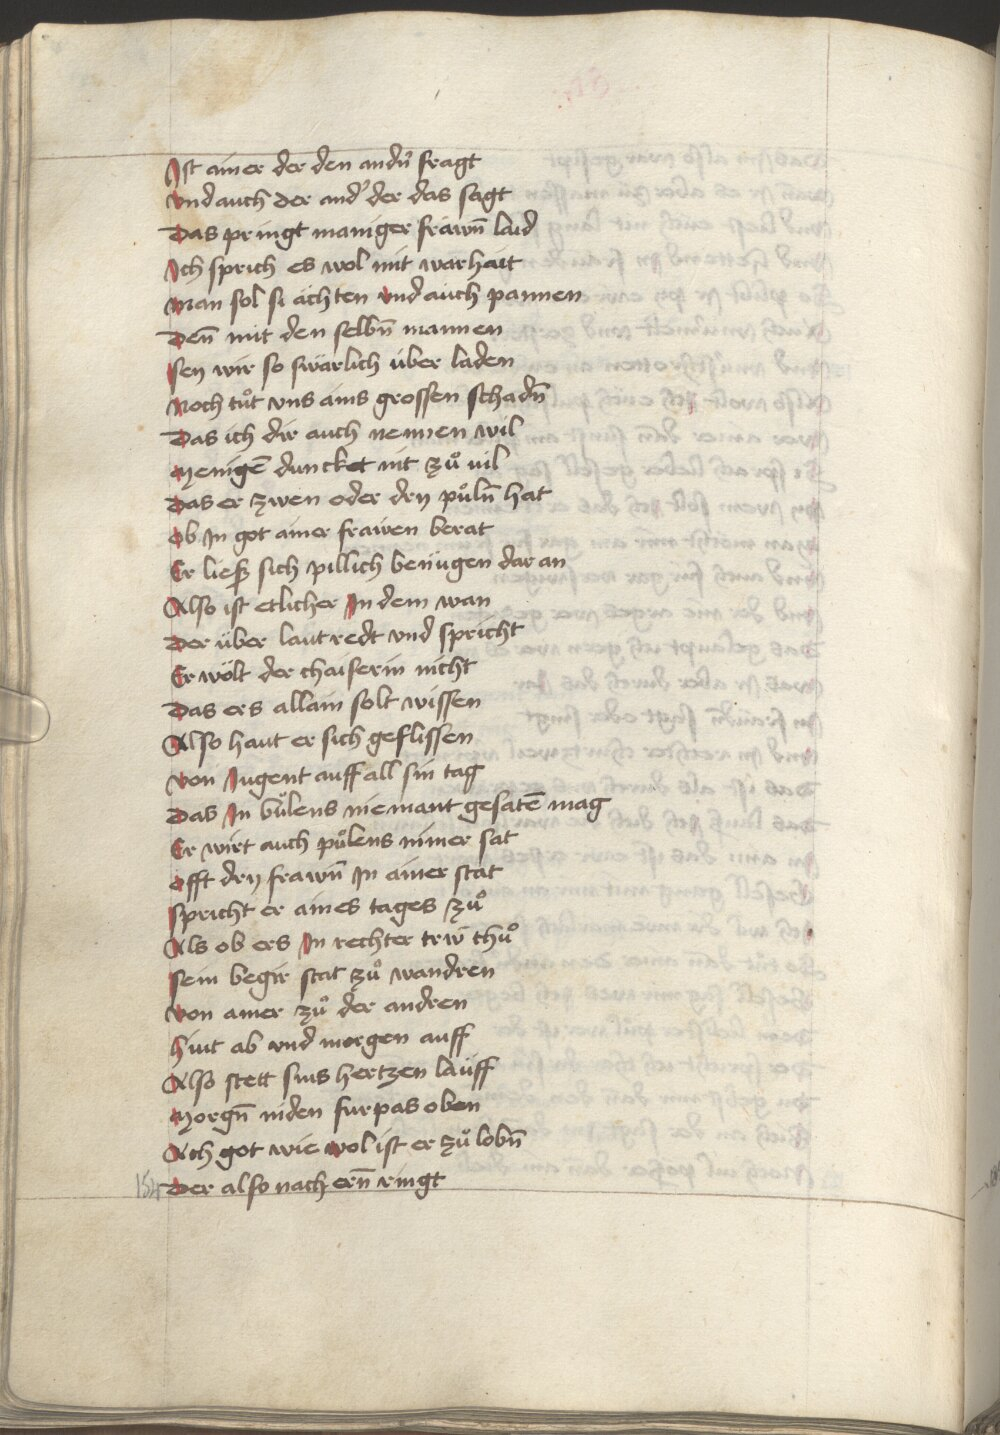 Ist ainer der den andn̄ fragt
Vnd auch der and' der das sagt
Das pringt maniger frawn̄ laid
Ich sprich es wol mit warhait
Man sol si ächten vnd auch pannen
Denn̄ mit den selbn̄ mannen
Sey wir so swärlich über laden
Noch tuͦt vns ains grossen schadn̄
Das ich dir auch nennen wil
Menigē duncket nit zuͦ uil
Das er zwen oder dry puͦln̄ hat
Ob In got ainer frawen berat
Er ließ sich pillich benügen dar an
Also ist etlicher In dem wan
Der über laut redt vnd spricht
Er wölt der chaiserin nicht
Das ers allain solt wissen
Also haut er sich geflissen
Von Iugent auff all sin tag
Das In buͦlens niemant gesatē mag
Er wirt auch puͦlens nimer sat
Offt dry frawn̄ In ainer stat
Spricht er aines tages zuͦ
Als ob ers In rechter trw̄ thuͦ
Sein begir stat zuͦ wandren
Von ainer zuͦ der andren
Hiut ab vnd morgen auff
Also stett sins hertzen läuff
Morgn̄ niden furpas oben
Ach got wie wol ist er zuͦ lobn̄
Der also nach ern̄ ringt